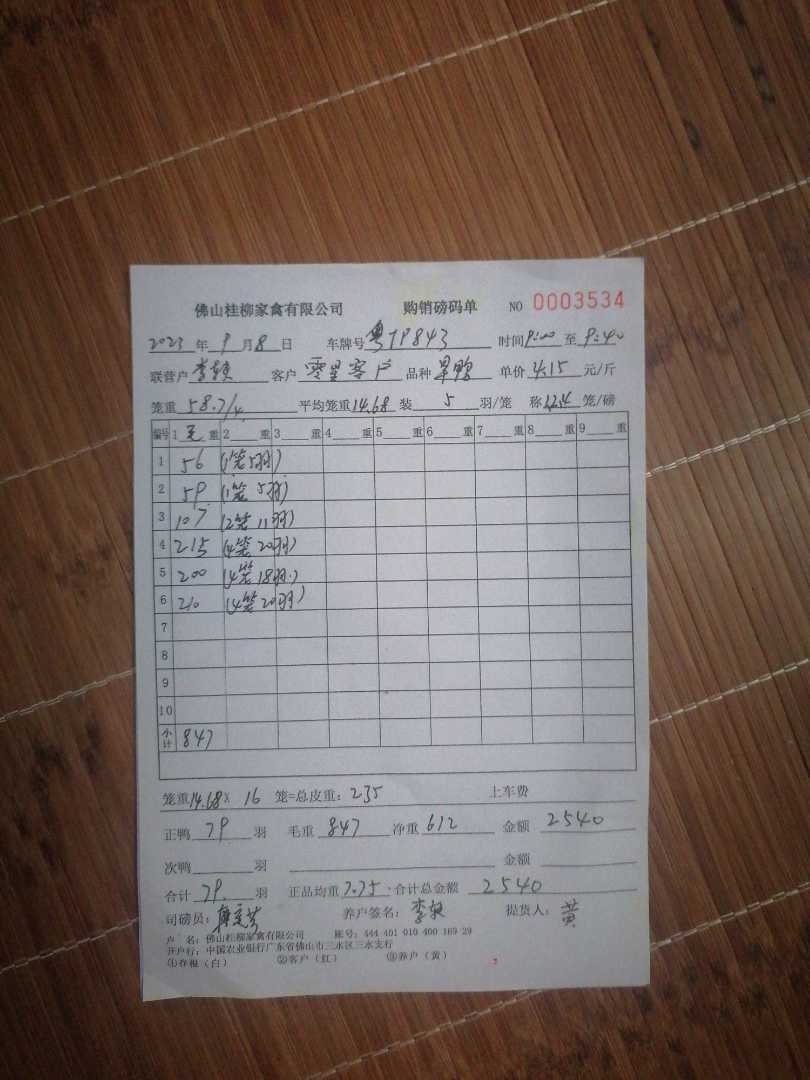 佛山桂柳家禽有限公司 购销磅码单 NO 0003534
2023年9月8日 车牌号 粤TP843 时间9:00至9:40
联营户 客户 零星客户 品种 单价4.15元/斤
笼重 58.7/4 平均笼重14.68 装5羽/笼 称 笼/磅
编号 1毛重 2重 3重 4重 5重 6重 7重 8重 9重
1 56 (1笼5羽)
2 59 (1笼5羽)
3 107 (2笼11羽)
4 215 (4笼20羽)
5 200 (4笼18羽)
6 210 (4笼20羽)
7
8
9
10
小计 847
笼重14.68×16笼=总皮重:235 上车费
正鸭79羽 毛重847 净重612 金额2540
次鸭 羽 金额
合计79羽 正品均重7.75 合计总金额2540
司磅员: 养户签名: 提货人:黄
户 名:佛山桂柳家禽有限公司 账号:444 401 010 400 169 29
开户行:中国农业银行广东省佛山市三水区三水支行
①存根(白) ②客户(红) ③养户(黄)